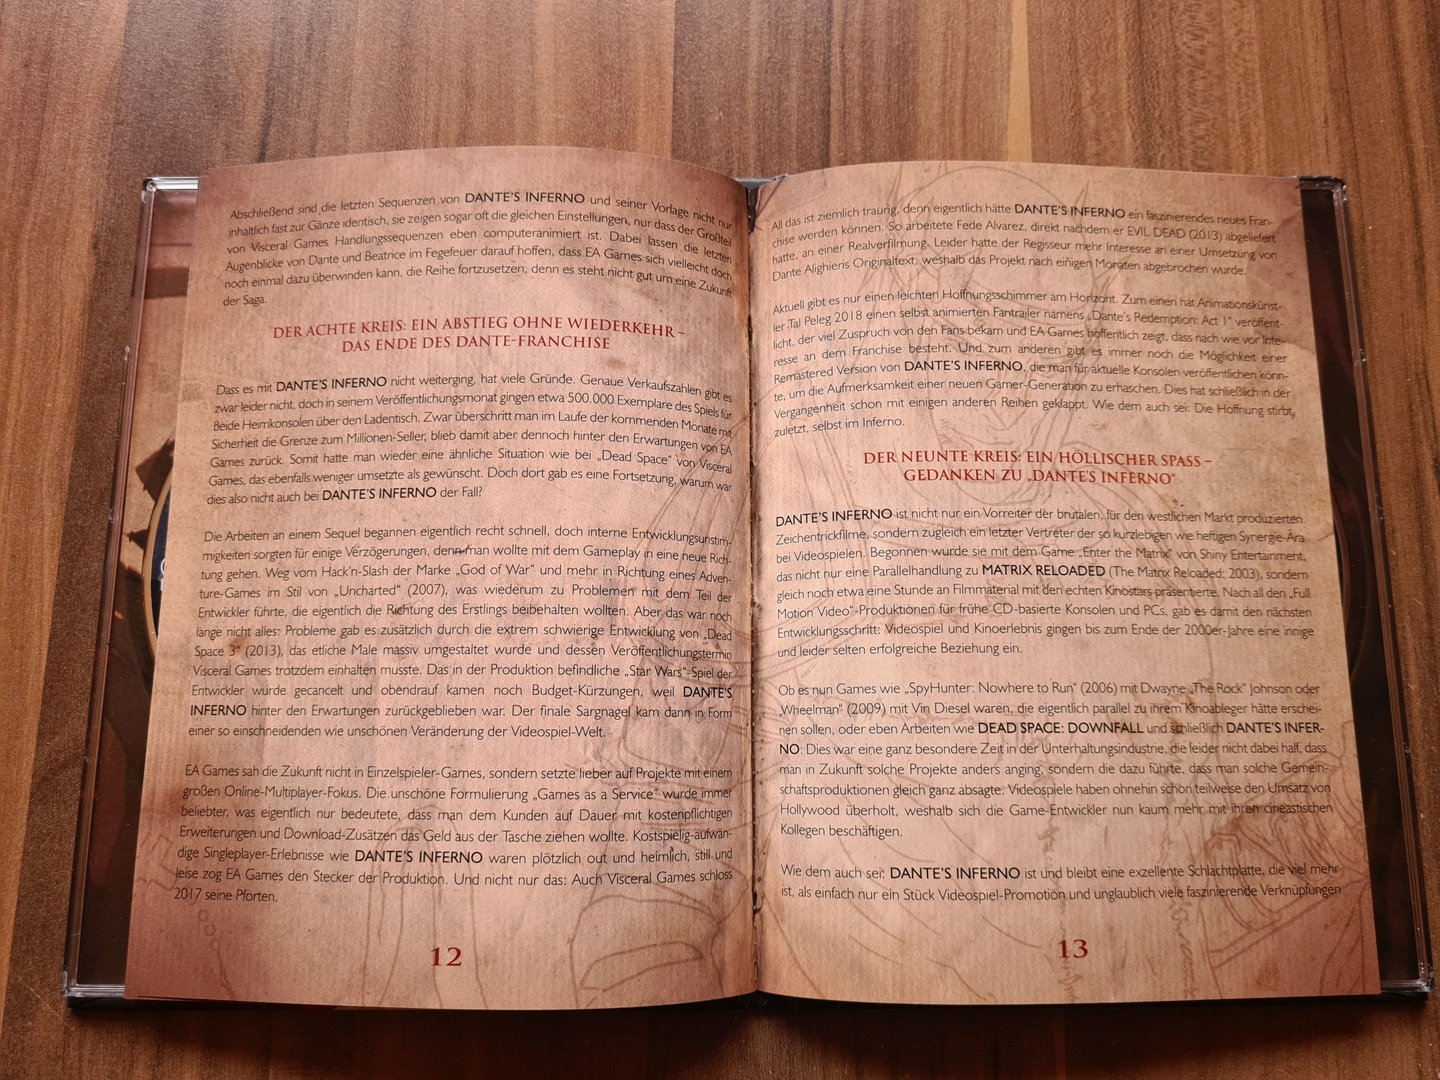 Abschließend sind die letzten Sequenzen von DANTE'S INFERNO und seiner Vorlage nicht nur
inhaltlich fast zur Gänze identisch, sie zeigen sogar oft die gleichen Einstellungen, nur dass der Großteil
von Visceral Games Handlungssequenzen eben computeranimiert ist. Dabei lassen die letzten
Augenblicke von Dante und Beatrice im Fegefeuer darauf hoffen, dass EA Games sich vielleicht doch
noch einmal dazu überwinden kann, die Reihe fortzusetzen, denn es steht nicht gut um eine Zukunft
der Saga.
DER ACHTE KREIS: EIN ABSTIEG OHNE WIEDERKEHR –
DAS ENDE DES DANTE-FRANCHISE
Dass es mit DANTE'S INFERNO nicht weiterging, hat viele Gründe. Genaue Verkaufszahlen gibt es
zwar leider nicht, doch in seinem Veröffentlichungsmonat gingen etwa 500.000 Exemplare des Spiels für
Beide Heimkonsolen über den Ladentisch. Zwar überschritt man im Laufe der kommenden Monate mit
Sicherheit die Grenze zum Millionen-Seller, blieb damit aber dennoch hinter den Erwartungen von EA
Games zurück. Somit hatte man wieder eine ähnliche Situation wie bei „Dead Space“ von Visceral
Games, das ebenfalls weniger umsetzte als gewünscht. Doch dort gab es eine Fortsetzung, warum war
dies also nicht auch bei DANTE'S INFERNO der Fall?
Die Arbeiten an einem Sequel begannen eigentlich recht schnell, doch interne Entwicklungsunstim-
migkeiten sorgten für einige Verzögerungen, denn man wollte mit dem Gameplay in eine neue Rich-
tung gehen. Weg vom Hack'n-Slash der Marke „God of War“ und mehr in Richtung eines Adven-
ture-Games im Stil von „Uncharted“ (2007), was wiederum zu Problemen mit dem Teil der
Entwickler führte, die eigentlich die Richtung des Erstlings beibehalten wollten. Aber das war noch
lange nicht alles: Probleme gab es zusätzlich durch die extrem schwierige Entwicklung von „Dead
Space 3“ (2013), das etliche Male massiv umgestaltet wurde und dessen Veröffentlichungstermin
Visceral Games trotzdem einhalten musste. Das in der Produktion befindliche „Star Wars“-Spiel der
Entwickler wurde gecancelt und obendrauf kamen noch Budget-Kürzungen, weil DANTE'S
INFERNO hinter den Erwartungen zurückgeblieben war. Der finale Sargnagel kam dann in Form
einer so einschneidenden wie unschönen Veränderung der Videospiel-Welt.
EA Games sah die Zukunft nicht in Einzelspieler-Games, sondern setzte lieber auf Projekte mit einem
großen Online-Multiplayer-Fokus. Die unschöne Formulierung „Games as a Service“ wurde immer
beliebter, was eigentlich nur bedeutete, dass man dem Kunden auf Dauer mit kostenpflichtigen
Erweiterungen und Download-Zusätzen das Geld aus der Tasche ziehen wollte. Kostspielig-aufwän-
dige Singleplayer-Erlebnisse wie DANTE'S INFERNO waren plötzlich out und heimlich, still und
leise zog EA Games den Stecker der Produktion. Und nicht nur das: Auch Visceral Games schloss
2017 seine Pforten.
12
All das ist ziemlich traurig, denn eigentlich hätte DANTE'S INFERNO ein faszinierendes neues Fran-
chise werden können. So arbeitete Fede Alvarez, direkt nachdem er EVIL DEAD (2013) abgeliefert
hatte, an einer Realverfilmung. Leider hatte der Regisseur mehr Interesse an einer Umsetzung von
Dante Alighieris Originaltext, weshalb das Projekt nach einigen Monaten abgebrochen wurde.
Aktuell gibt es nur einen leichten Hoffnungsschimmer am Horizont. Zum einen hat Animationskünst-
ler Tal Peleg 2018 einen selbst animierten Fantrailer namens „Dante's Redemption: Act I“ veröffent-
licht, der viel Zuspruch von den Fans bekam und EA Games hoffentlich zeigt, dass nach wie vor Inte-
resse an dem Franchise besteht. Und zum anderen gibt es immer noch die Möglichkeit einer
Remastered Version von DANTE'S INFERNO, die man für aktuelle Konsolen veröffentlichen könn-
te, um die Aufmerksamkeit einer neuen Gamer-Generation zu erhaschen. Dies hat schließlich in der
Vergangenheit schon mit einigen anderen Reihen geklappt. Wie dem auch sei: Die Hoffnung stirbt
zuletzt, selbst im Inferno.
DER NEUNTE KREIS: EIN HÖLLISCHER SPASS –
GEDANKEN ZU „DANTE'S INFERNO“
DANTE'S INFERNO ist nicht nur ein Vorreiter der brutalen, für den westlichen Markt produzierten
Zeichentrickfilme, sondern zugleich ein letzter Vertreter der so kurzlebigen wie heftigen Synergie-Ära
bei Videospielen. Begonnen wurde sie mit dem Game „Enter the Matrix“ von Shiny Entertainment,
das nicht nur eine Parallelhandlung zu MATRIX RELOADED (The Matrix Reloaded; 2003), sondern
gleich noch etwa eine Stunde an Filmmaterial mit den echten Kinostars präsentierte. Nach all den „Full
Motion Video“-Produktionen für frühe CD-basierte Konsolen und PCs, gab es damit den nächsten
Entwicklungsschritt: Videospiel und Kinoerlebnis gingen bis zum Ende der 2000er-Jahre eine innige
und leider selten erfolgreiche Beziehung ein.
Ob es nun Games wie „SpyHunter: Nowhere to Run“ (2006) mit Dwayne „The Rock“ Johnson oder
„Wheelman“ (2009) mit Vin Diesel waren, die eigentlich parallel zu ihrem Kinoableger hätte erschei-
nen sollen, oder eben Arbeiten wie DEAD SPACE: DOWNFALL und schließlich DANTE'S INFER-
NO: Dies war eine ganz besondere Zeit in der Unterhaltungsindustrie, die leider nicht dabei half, dass
man in Zukunft solche Projekte anders anging, sondern die dazu führte, dass man solche Gemein-
schaftsproduktionen gleich ganz absagte. Videospiele haben ohnehin schon teilweise den Umsatz von
Hollywood überholt, weshalb sich die Game-Entwickler nun kaum mehr mit ihren cineastischen
Kollegen beschäftigen.
Wie dem auch sei: DANTE'S INFERNO ist und bleibt eine exzellente Schlachtplatte, die viel mehr
ist, als einfach nur ein Stück Videospiel-Promotion und unglaublich viele faszinierende Verknüpfungen
13